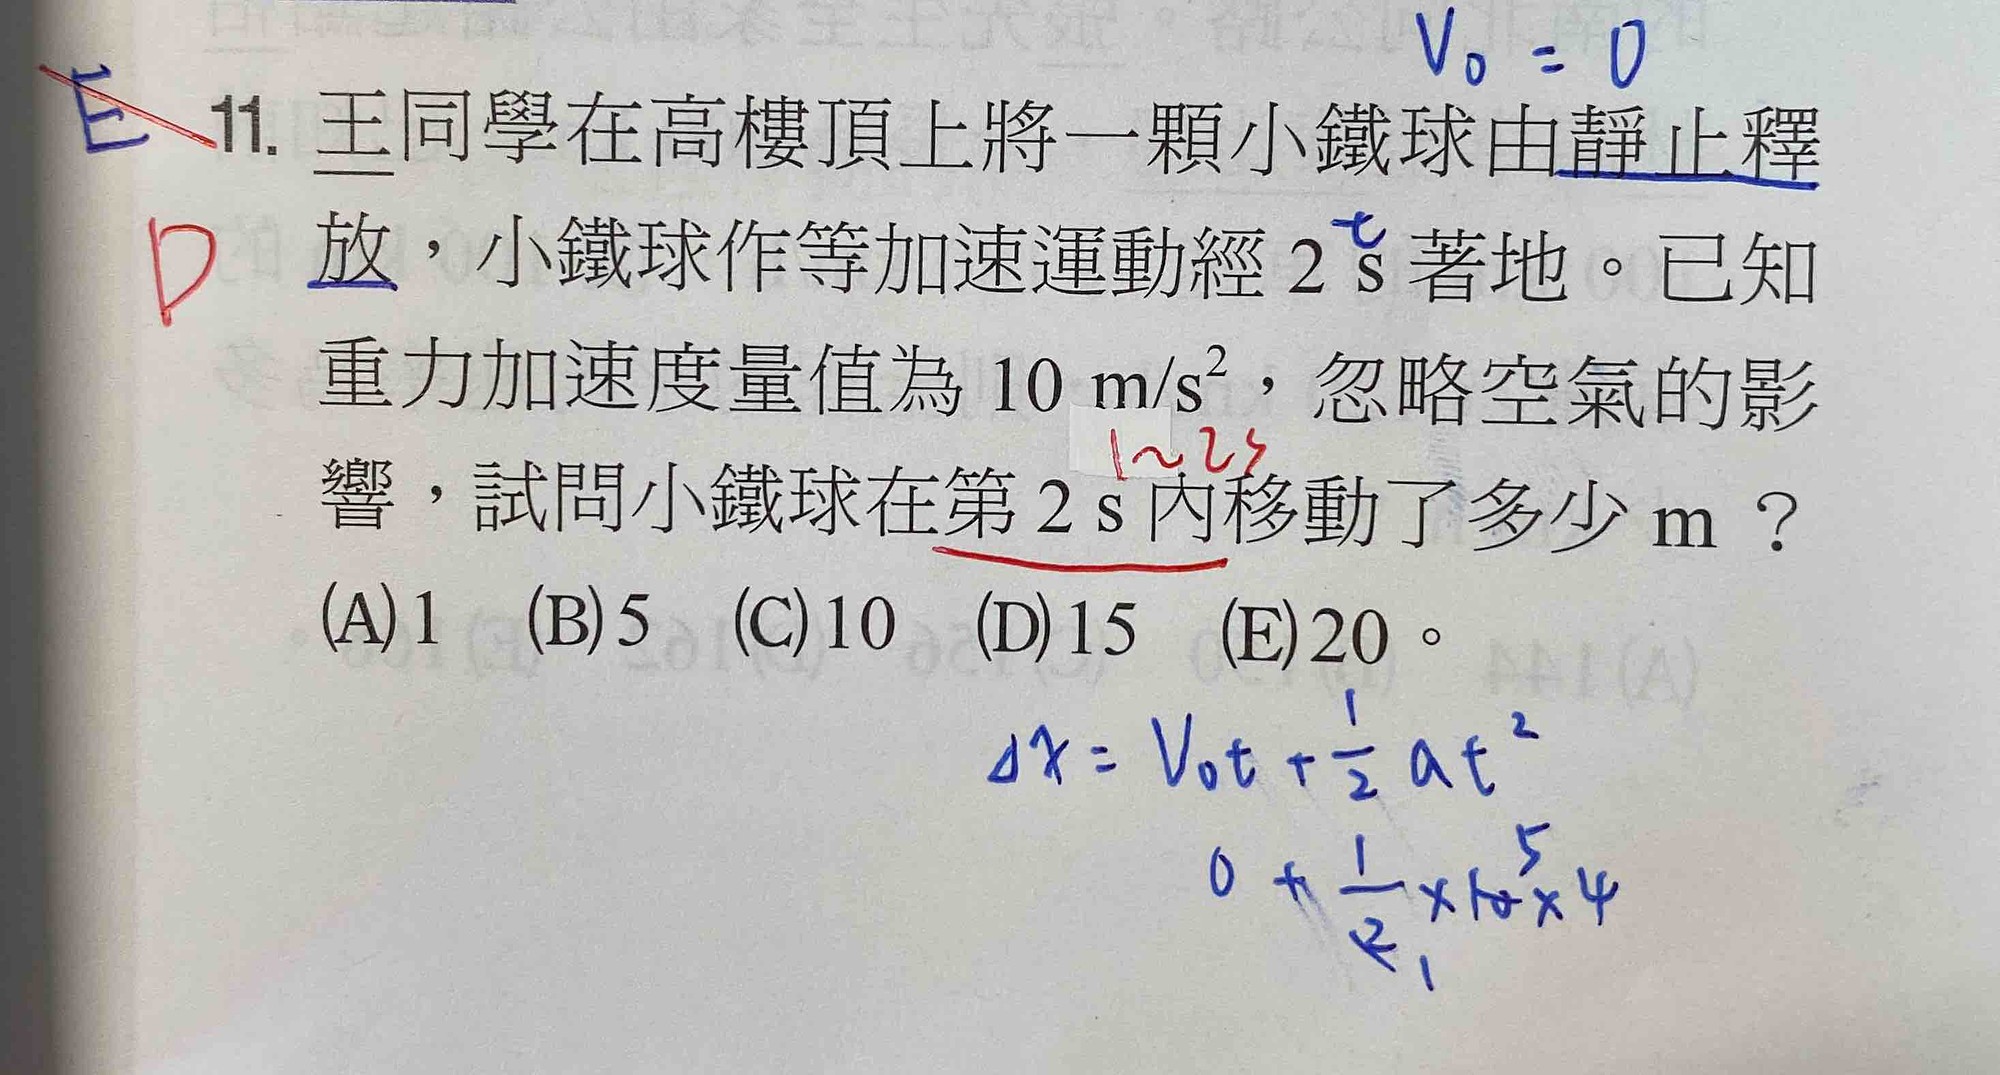 V₀ = 0
E 11. 王同學在高樓頂上將一顆小鐵球由靜止釋
t
D 放，小鐵球作等加速運動經 2 s 著地。已知
重力加速度量值為 10 m/s²，忽略空氣的影
1~2s
響，試問小鐵球在第 2 s 內移動了多少 m？
(A) 1 (B) 5 (C) 10 (D) 15 (E) 20。
Δx = V₀t + 1/2 at²
0 + 1/2 × 10 × 4
5
1